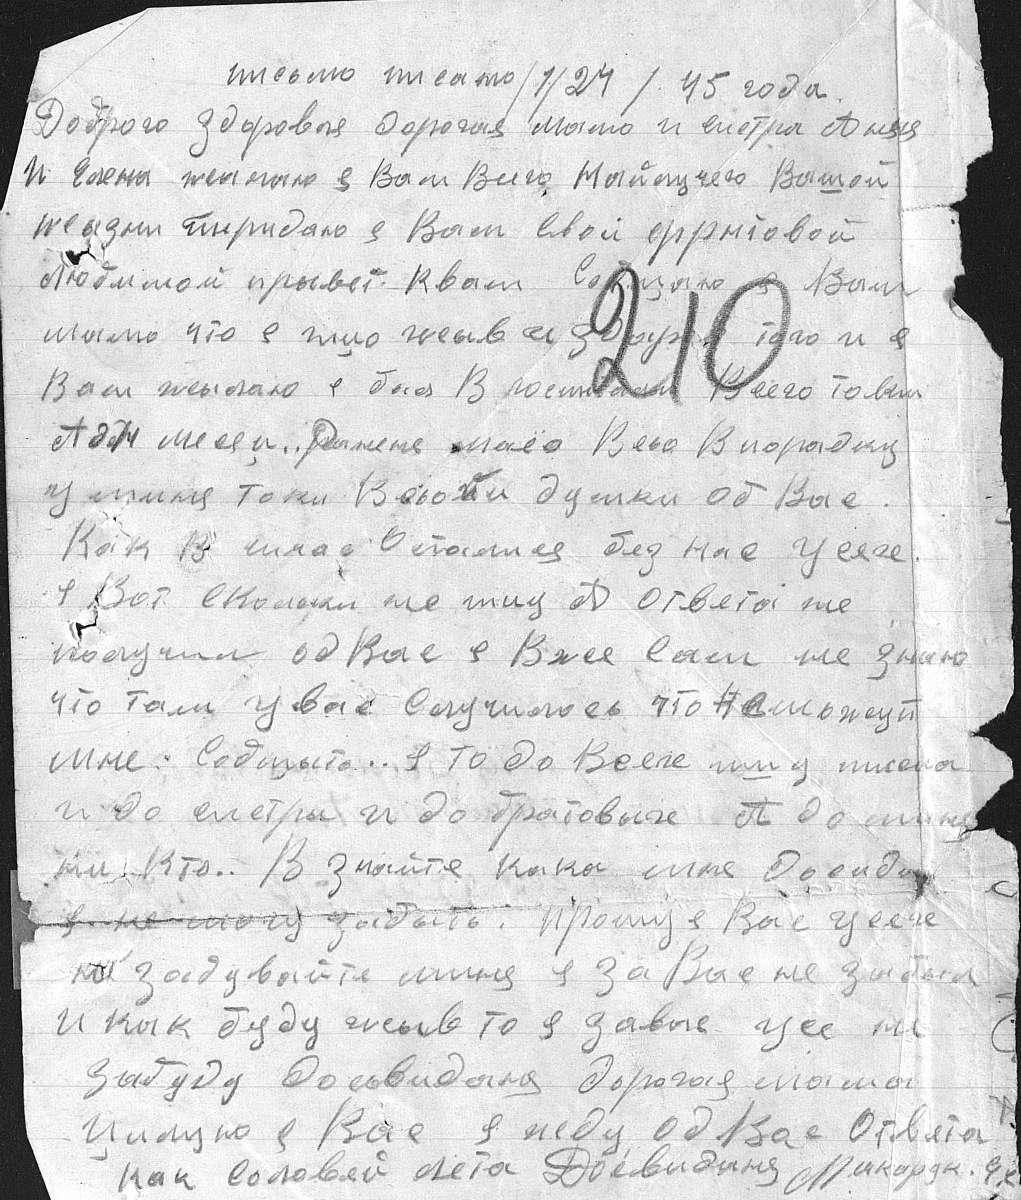 письмо писано /1/24 / 45 года.
Доброго Здоровья дорогая мамо и систра Аня
И Елена жылаю я Вам Всего Найлучего Вашой
жызни пиридаю я Вам Свой фрнтовой
любимой прывет. К вам Собщаю я Вам
мамо что я жыв и здоров того и я
Вам жылаю я був В госпитали Всего
Адін месец.. Раненя маё Всьо В порадку
у миня токи Всьо и думки об Вас.
Как В Остались без нас усех.
я Вот Сколки не пишу А ответа не
получил од Вас я Вже Сам не знаю
что там у вас Случилось что Не можут
мне. Собщыть.. я то до Всех пишу писма
и до систры и до братовых А до миня
ни Кто.. В знайте кака мне досида
я не могу забыть. Прошу я Вас усех
не забувайте миня я За Вас не забыл
И как буду жыв то я за вас усе не
Забуду Досьвиданя дорогая мама
Цилую я Вас я жду од Вас Ответа
как Соловей лета Досвиданя
210